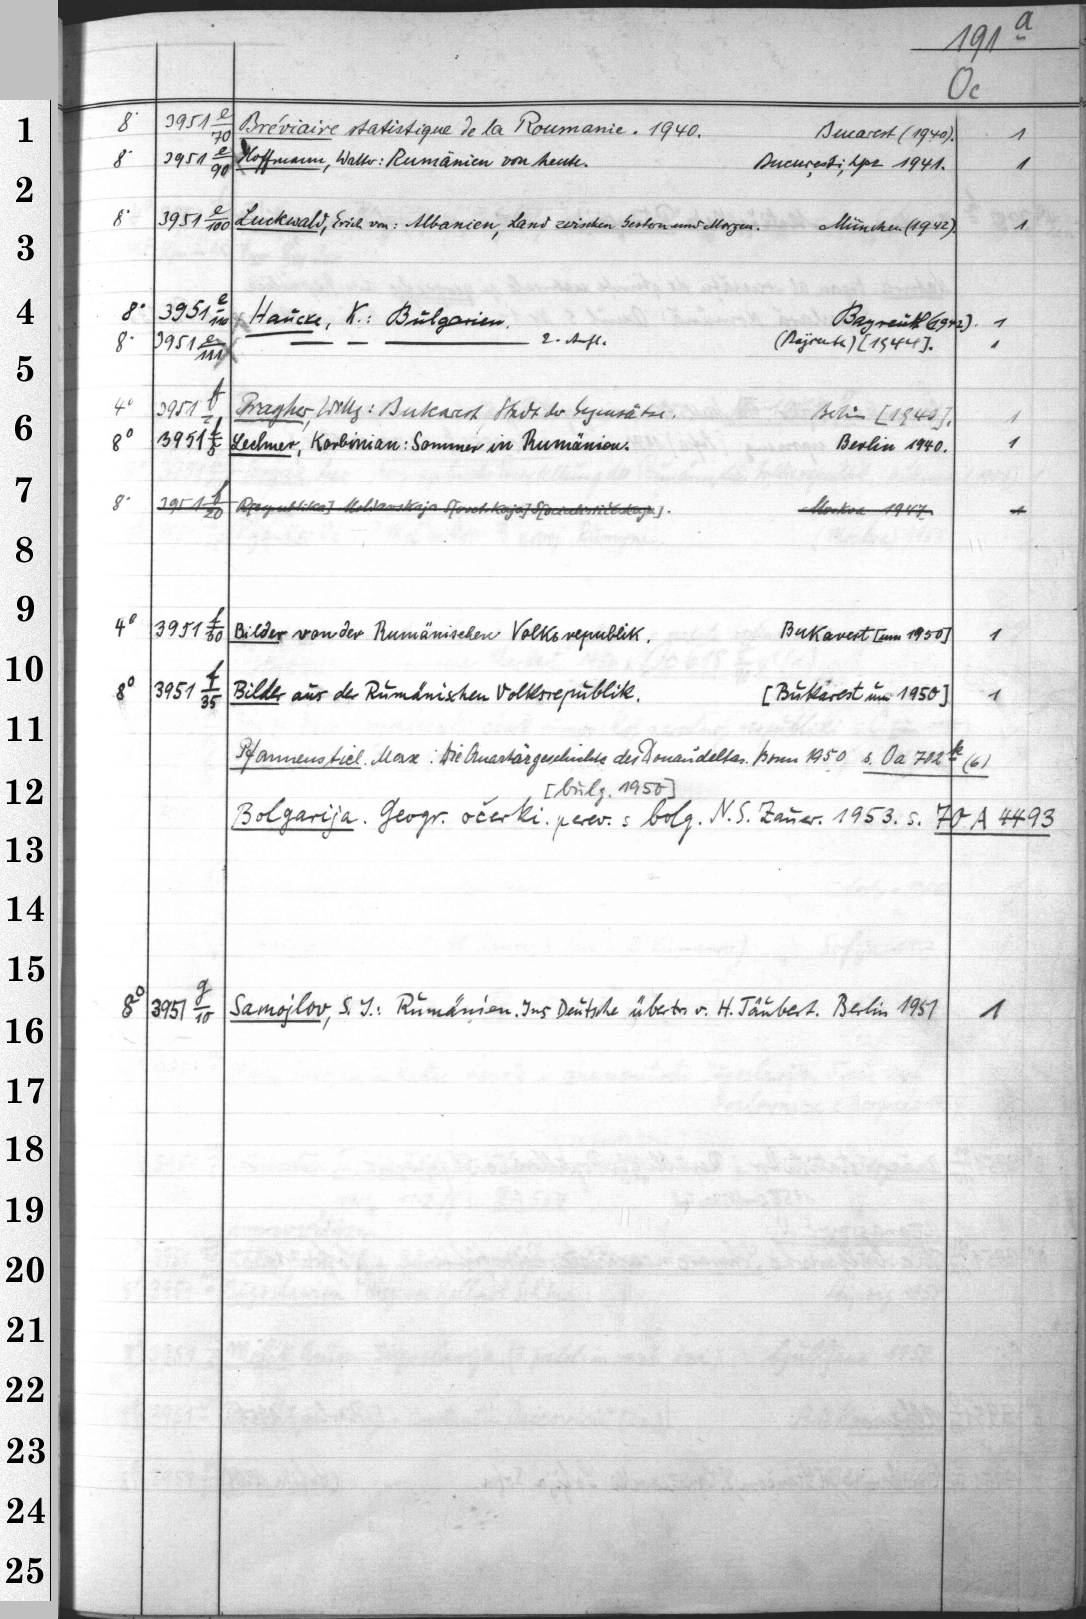 191 a
Oc
1
8° 3951 e/70 Bréviaire statistique de la Roumanie. 1940. Bucarest (1940). 1
8° 3951 e/90 Hoffmann, Walter: Rumänien von heute. București; Lpz 1941. 1
2
8° 3951 e/100 Luckwald, Erich von: Albanien, Land zwischen Gestern und Morgen. München (1942) 1
3
4
8° 3951 e/110 Haucke, K.: Bulgarien. Bayreuth (1942). 1
8° 3951 e/111 — — — 2. Aufl. (Bayreuth) [1944]. 1
5
4° 3951 f/1 Pragher, Willy: Bukarest, Stadt der Gegensätze. Berlin [1942]. 1
6
8° 3951 f/5 Lechner, Korbinian: Sommer in Rumänien. Berlin 1940. 1
7
8° 3951 f/20 R[espublika] Moldavskaja S[ovetskaja] S[ocialističeskaja]. Moskva 1947 1
8
9
4° 3951 f/30 Bilder von der Rumänischen Volksrepublik. Bukarest [um 1950] 1
10
8° 3951 f/35 Bilder aus der Rumänischen Volksrepublik. [Bukarest um 1950] 1
11
Pfannenstiel, Max: Die Quartärgeschichte des Donaudeltas. Bonn 1950 s. Oa 702 k (6)
12
[bulg. 1950]
Bolgarija. Geogr. očerki. perev. s bolg. N. S. Zauer. 1953. s. 70 A 4493
13
14
15
8° 3951 g/10 Samojlov, S. I.: Rumänien. Ins Deutsche übertr v. H. Täubert. Berlin 1951 1
16
17
18
19
20
21
22
23
24
25